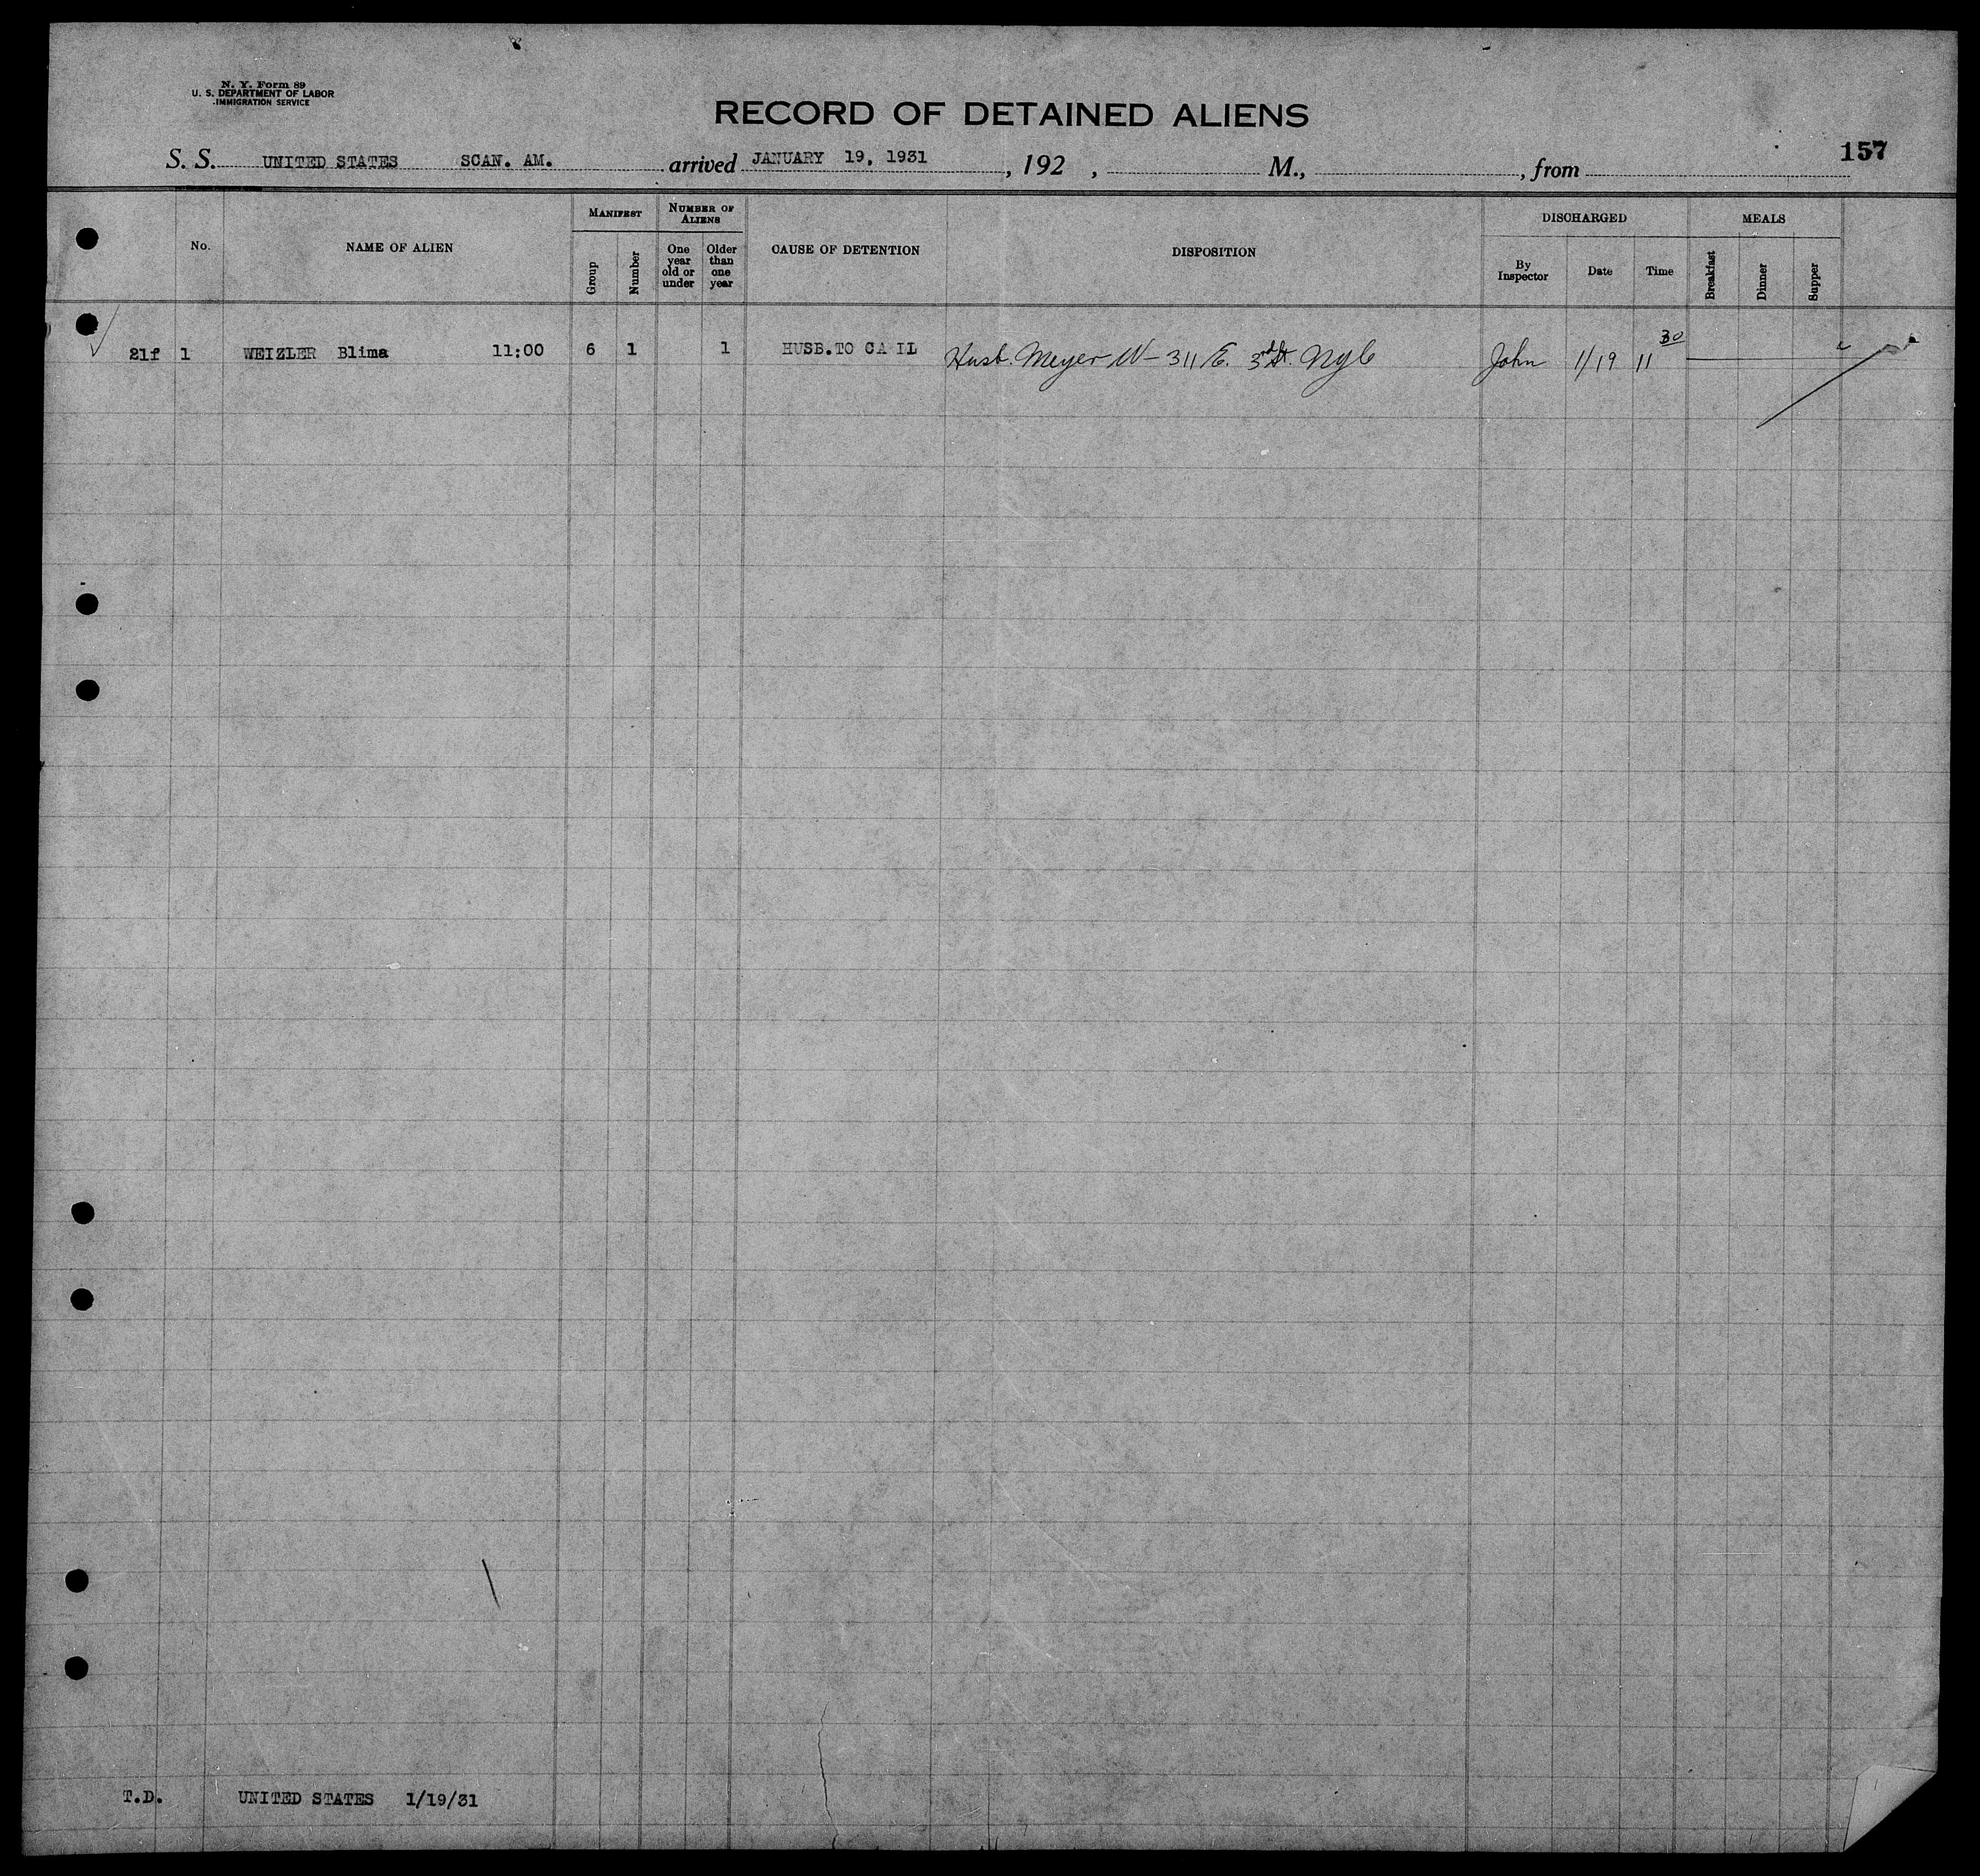 N. Y. Form 89
U. S. DEPARTMENT OF LABOR
IMMIGRATION SERVICE
RECORD OF DETAINED ALIENS
157
S. S. UNITED STATES SCAN. AM. arrived JANUARY 19, 1931, 192 , M., , from
No.
NAME OF ALIEN
MANIFEST
Group
Number
NUMBER OF ALIENS
One year old or under
Older than one year
CAUSE OF DETENTION
DISPOSITION
DISCHARGED
By Inspector
Date
Time
MEALS
Breakfast
Dinner
Supper
21f 1 WEIZLER Blima 11:00 6 1 1 HUSB.TO CA IL Husb. Meyer W- 311 E. 3rd St. NYC John 1/19 11 30
T.D. UNITED STATES 1/19/31